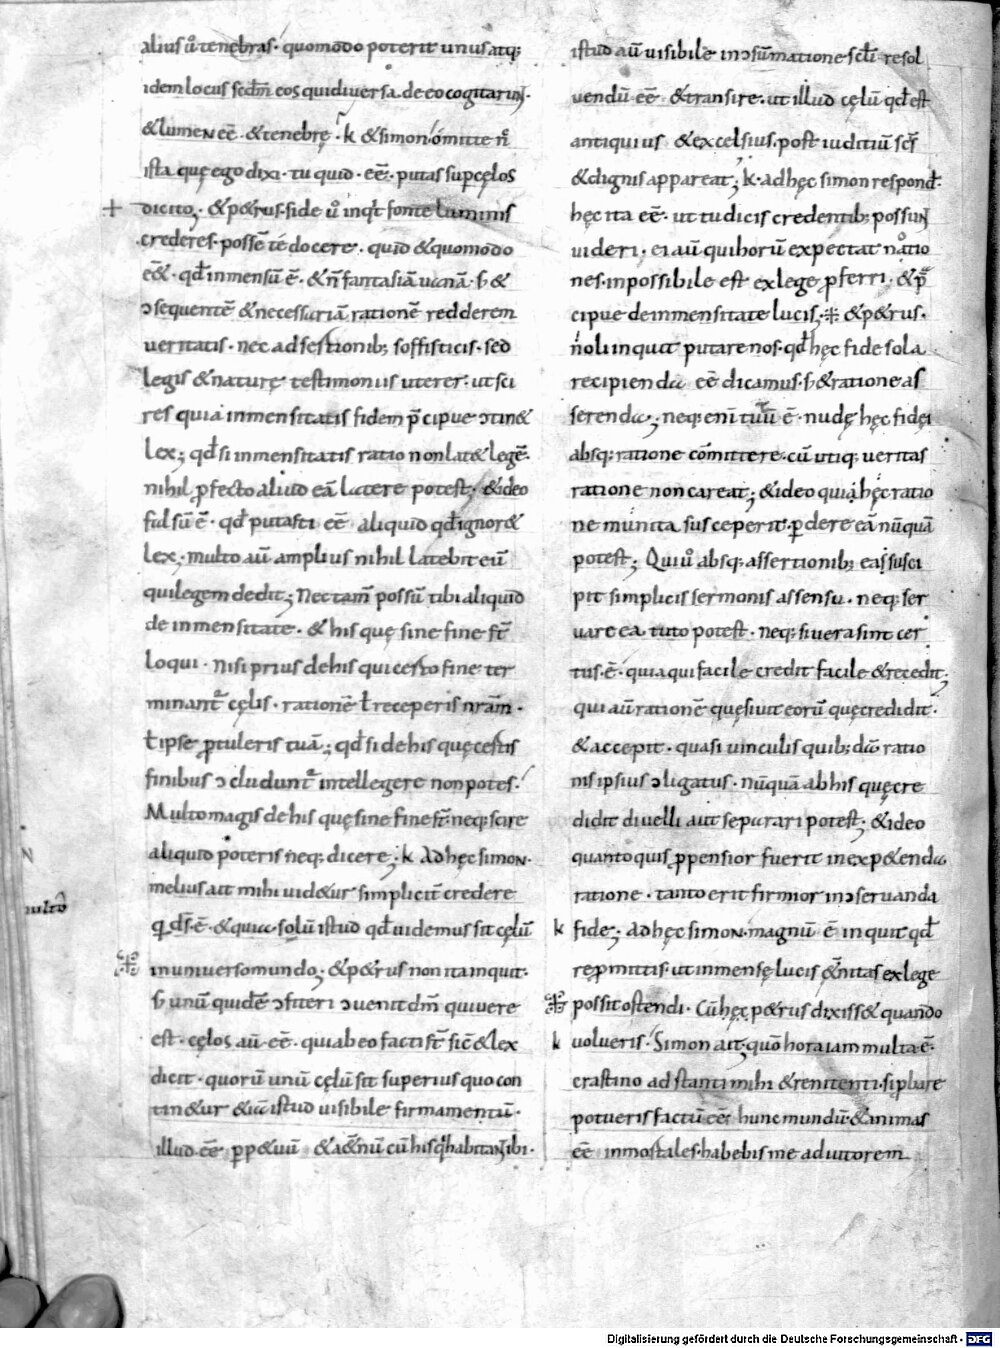 alius ũ tenebras· quomodo poterit unus atq;
idem locus scdm̄ eos qui diversa de eo cogitarint·
& lumen eē· & tenebrę· k & simon· omitte n̄c
ista quę ego dixi· tu quid· eē· putas sup cęlos
+ dicito; & p&rus· side uo inqt fonte luminis
crederes· possē te docere· quid & quomodo
eē&· qd̄ inmensū ē· & n̄ fantasiā uanā· s; &
ɔsequentē & necessariā rationē redderem
ueritatis· nec adsertionib; soffisticis· sed
legis & naturę testimoniis uterer· ut sci
res quia inmensitatis fidem p̄cipue ɔtin&
lex; qd̄ si inmensitatis ratio non lat& legē·
nihil ꝓfecto aliud eā latere potest· & ideo
falsū ē· qd̄ putasti eē aliquid qd̄ ignor&
lex· multo aū amplius nihil latebit eū
qui legem dedit; Nec tam̄ possū tibi aliquid
de inmensitate· & his quę sine fine st̄
loqui· nisi prius de his qui certo fine ter
minant᷑ cęlis· rationē ł receperis nr̄am·
ł ipse ꝓtuleris tuā; qd̄ si de his quę certis
finibus ɔcludunt᷑ intellegere non potes·
Multo magis de his quę sine fine st̄· neq; scire
aliquid poteris neq; dicere; k ad hęc simon·
melius ait mihi uid&ur simplicit̄ credere
multū
q d̄s· ē· & quia solū istud qd̄ uidemus sit cęlū
in uniuerso mundo; & p&rus non ita inquit·
s; unū quidē ɔfiteri ɔuenit dm̄ qui uere
est· cęlos aū· eē· qui ab eo facti st̄ sic̄ & lex
dicit· quorū unū cęlū sit superius quo con
tin&ur &iā istud uisibile firmamentū·
illud· eē· ꝑp&uū & a&̄nū cū his q̄ habitant ibi·
istud aū uisibile in ɔsūmatione scl̄i resol
vendū eē & transire· ut illud cęlū qd̄ est
antiquius & excelsius· post iuditiū scīs
& dignis appareat; k· ad hęc simon respond̄·
hęc ita eē· ut tu dicis credentib; possunt
uideri· ei aū qui horū expectat ratio
nes· inpossibile est ex lege ꝓferri· & p̄
cipue de inmensitate lucis; & p&rus·
noli inquit putare nos· qd̄ hęc fide sola
recipienda eē dicamus· s; & ratione as
serenda; neq; enī tutū ē· nudę hęc fidei
absq; ratione cōmittere· cū utiq; ueritas
ratione non careat; & ideo qui hęc ratio
ne munita susceperit· ꝑdere eā nūquā
potest; Qui uo absq; assertionib; eas susci
pit simplicis sermonis assensu· neq; ser
uare ea tuto potest· neq; si uera sint cer
tus· ē· quia qui facile credit facile & recedit;
qui aū rationē quęsiuit eorū quę credidit·
& accepit· quasi uinculis quib; dā ratio
nis ipsius ɔligatus· nūquā ab his quę cre
didit diuelli aut separari potest; & ideo
quanto quis ꝓpensior fuerit in exp&enda
ratione· tanto erit firmior in ɔseruanda
k fide; ad hęc simon· magnū ē inquit qd̄
repromittis· ut inmensę lucis &̄nitas ex lege
possit ostendi· Cū hęc p&rus dixiss& quando
k uolueris· Simon ait; quō hora iam multa ē·
crastino adstanti mihi & renitenti· si pbare
potueris factū eē hunc mundū· & animas
eē inmortales· habebis me adiutorem